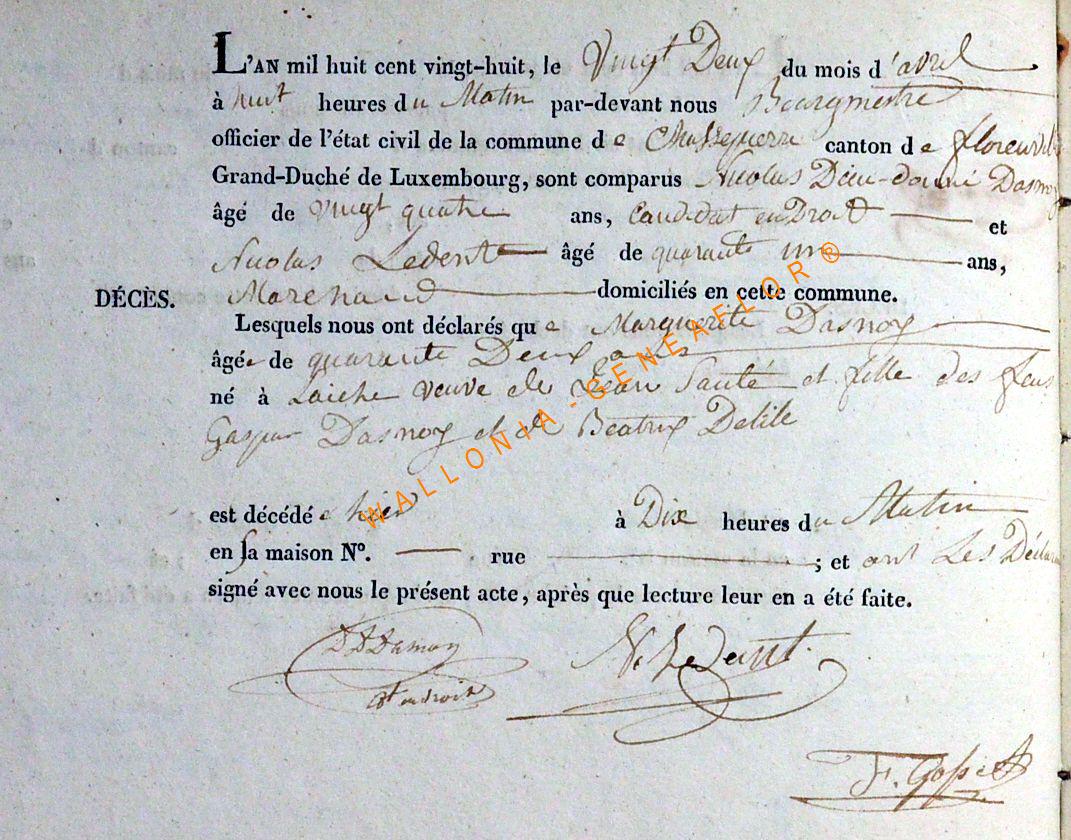 L'AN mil huit cent vingt-huit, le Vingt Deux du mois d'avril
à huit heures du Matin par-devant nous Bourgmestre
officier de l'état civil de la commune de Chassepierre canton de florenville
Grand-Duché de Luxembourg, sont comparus Nicolas Dieu-donné Dasnoy
âgé de vingt quatre ans, Candidat en Droit et
Nicolas Ledent âgé de quarante un ans,
DÉCÈS. Marchand domiciliés en cette commune.
Lesquels nous ont déclarés que Marguerite Dasnoy
âgée de quarante Deux ans
né à Laiche veuve de Jean Santé et fille des feus
Gaspar Dasnoy et de Beatrix Delile
est décédée hier à Dix heures du Matin
en sa maison N°. rue ; et ont Les Déclarants
signé avec nous le présent acte, après que lecture leur en a été faite.
Dasnoy N. Ledent
en droit
WALLONIA-GENEAFLOR®